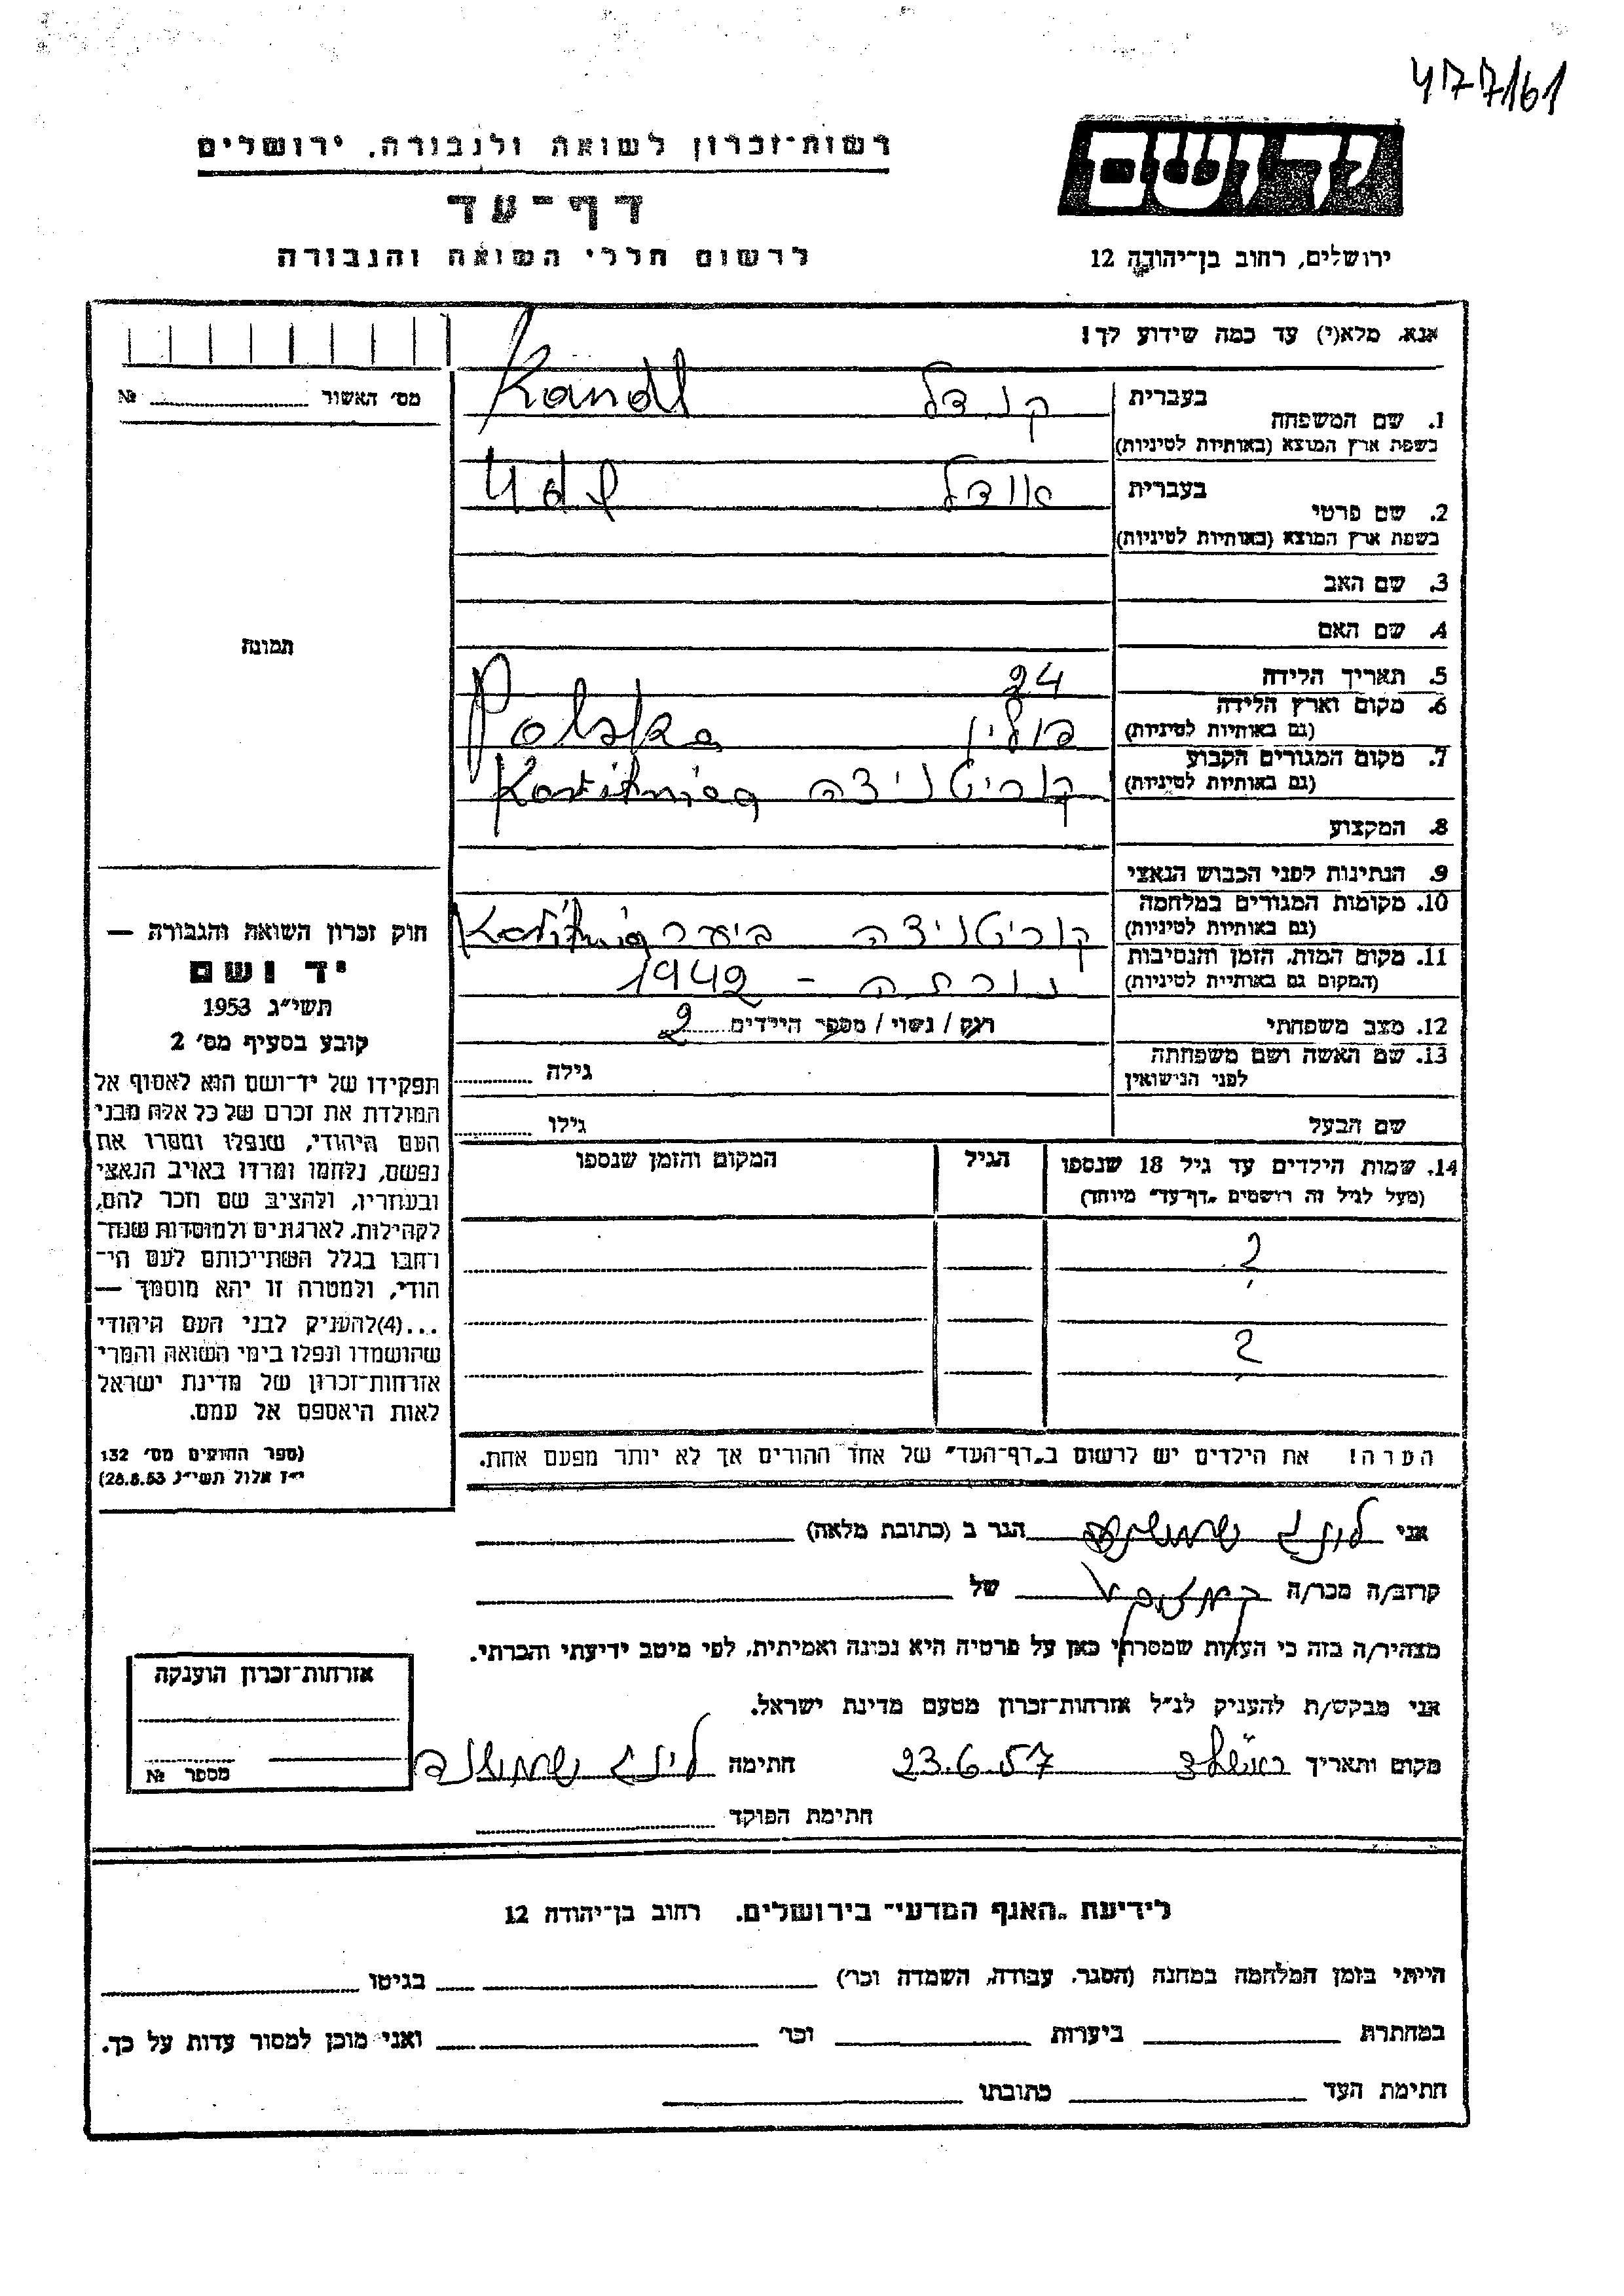 477161
רשות-זכרון לשואה ולגבורה, ירושלים
יד ושם
דף-עד
לרשום חללי השואה והגבורה
ירושלים, רחוב בן-יהודה 12
אנא, מלא(י) עד כמה שידוע לך!
מס' האשור №
תמונה
1. שם המשפחה
בעברית קנדל Kandl
בשפת ארץ המוצא (באותיות לטיניות)
2. שם פרטי
בעברית אודל
בשפת ארץ המוצא (באותיות לטיניות)
3. שם האב
4. שם האם
5. תאריך הלידה 24
6. מקום וארץ הלידה פולין Polska
(גם באותיות לטיניות)
7. מקום המגורים הקבוע קוריטניצה
(גם באותיות לטיניות)
8. המקצוע
9. הנתינות לפני הכבוש הנאצי
10. מקומות המגורים במלחמה קוריטניצה ביער
(גם באותיות לטיניות)
11. מקום המות, הזמן והנסיבות נורתה - 1942
(המקום גם באותיות לטיניות)
12. מצב משפחתי רוק / נשוי / מספר הילדים 2
13. שם האשה ושם משפחתה
לפני הנישואין גילה
שם הבעל גילו
14. שמות הילדים עד גיל 18 שנספו הגיל המקום והזמן שנספו
(מעל לגיל זה רושמים "דף-עד" מיוחד)
?
?
הערה! את הילדים יש לרשום ב"דף-העד" של אחד ההורים אך לא יותר מפעם אחת.
חוק זכרון השואה והגבורה —
יד ושם
תשי"ג 1953
קובע בסעיף מס' 2
תפקידו של יד-ושם הוא לאסוף אל
המולדת את זכרם של כל אלה מבני
העם היהודי, שנפלו ומסרו את
נפשם, נלחמו ומרדו באויב הנאצי
ובעוזריו, ולהציב שם וזכר להם,
לקהילות, לארגונים ולמוסדות שנח-
רבו בגלל השתייכותם לעם הי-
הודי, ולמטרה זו יהא מוסמך —
...(4)להעניק לבני העם היהודי
שהושמדו ונפלו בימי השואה והמרי
אזרחות-זכרון של מדינת ישראל
לאות היאספם אל עמם.
(ספר החוקים מס' 132
י"ז אלול תשי"ג 28.8.53)
אני הגר ב (כתובת מלאה)
קרוב/ה מכר/ה של
מצהיר/ה בזה כי העדות שמסרתי כאן על פרטיה היא נכונה ואמיתית, לפי מיטב ידיעתי והכרתי.
אני מבקש/ת להעניק לנ"ל אזרחות-זכרון מטעם מדינת ישראל.
מקום ותאריך 23.6.57 חתימה
חתימת הפוקד
אזרחות-זכרון הוענקה
מספר №
לידיעת "האגף המדעי" בירושלים, רחוב בן-יהודה 12
הייתי בזמן המלחמה במחנה (הסגר, עבודה, השמדה וכו') בגיטו
במחתרת ביערות וכו' ואני מוכן למסור עדות על כך.
חתימת העד כתובתו